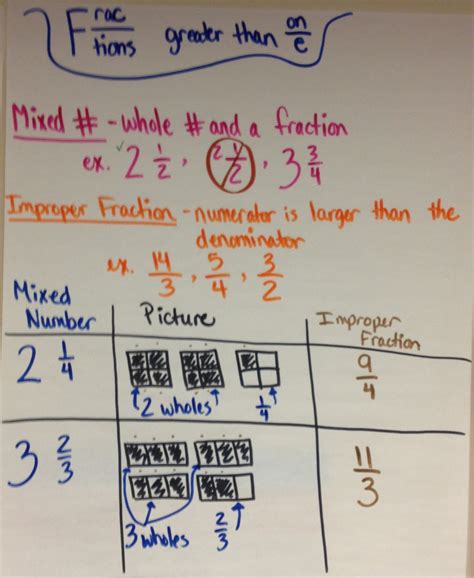 Fractions greater than one
Mixed # - whole # and a fraction
ex. ✓2 1/2, 2 1/2, 3 3/4
Improper Fraction - numerator is larger than the
denominator
ex. 14/3, 5/4, 3/2
Mixed Number
Picture
Improper Fraction
2 1/4
2 wholes
1/4
9/4
3 2/3
3 wholes
2/3
11/3